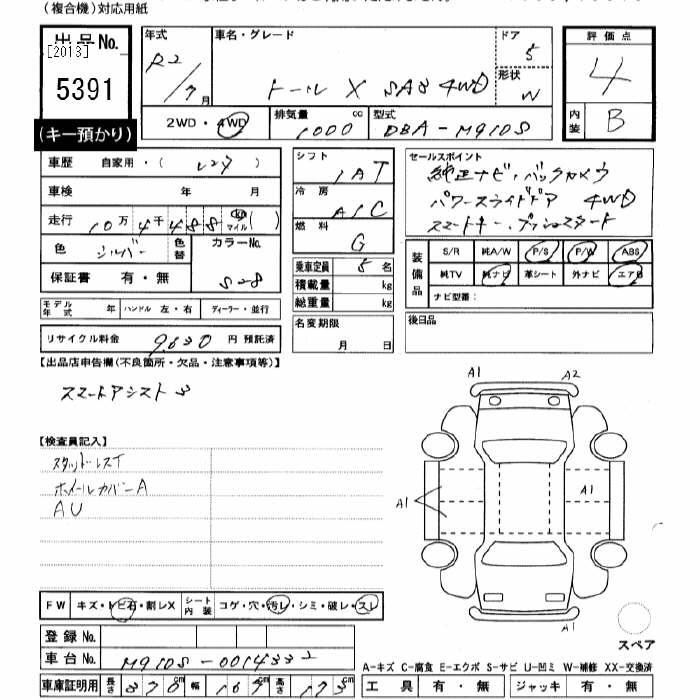 (複合機)対応用紙
出品No.
[2013]
5391
(キー預かり)
年式 R2/7月
車名・グレード トール X SAⅢ 4WD
ドア 5
形状 W
評価点 4
内装 B
2WD・4WD
排気量 1000 cc
型式 DBA-M910S
車歴 自家用・(レンタ)
車検 年 月
走行 10万4千488 km マイル ( )
色 シルバー 色替 カラーNo. S28
保証書 有・無
シフト IAT
冷房 A/C
燃料 G
乗車定員 5名
積載量 kg
総重量 kg
セールスポイント
純正ナビ・バックカメラ
パワースライドドア 4WD
スマートキー・プッシュスタート
装備品 S/R 純A/W P/S P/W ABS
純TV 純ナビ 革シート 外ナビ エアB
ナビ型番:
モデル年式 年 ハンドル 左・右 ディーラー・並行
名変期限 月 日
後日品
リサイクル料金 9,630 円 預託済
【出品店申告欄(不良箇所・欠品・注意事項等)】
スマートアシスト3
A1 A2
【検査員記入】
スタッドレスT
ホイールカバーA
AU
A1 A1
FW キズ・トビ石・割レX シート内装 コゲ・穴・汚レ・シミ・破レ・スレ
A1
登録No.
スペア
車台No. M910S-0014332
A-キズ C-腐食 E-エクボ S-サビ U-凹ミ W-補修 XX-交換済
車庫証明用 長さ 370cm 幅 167cm 高さ 173cm
工具 有・無 ジャッキ 有・無